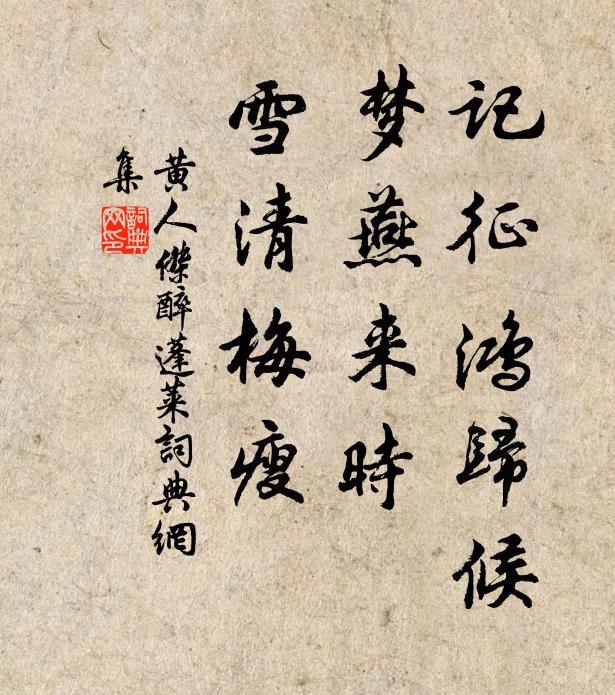 记征鸿歸候
梦燕来時
雪清梅瘦
黄人傑醉蓬莱詞典網
集
詞典
网印